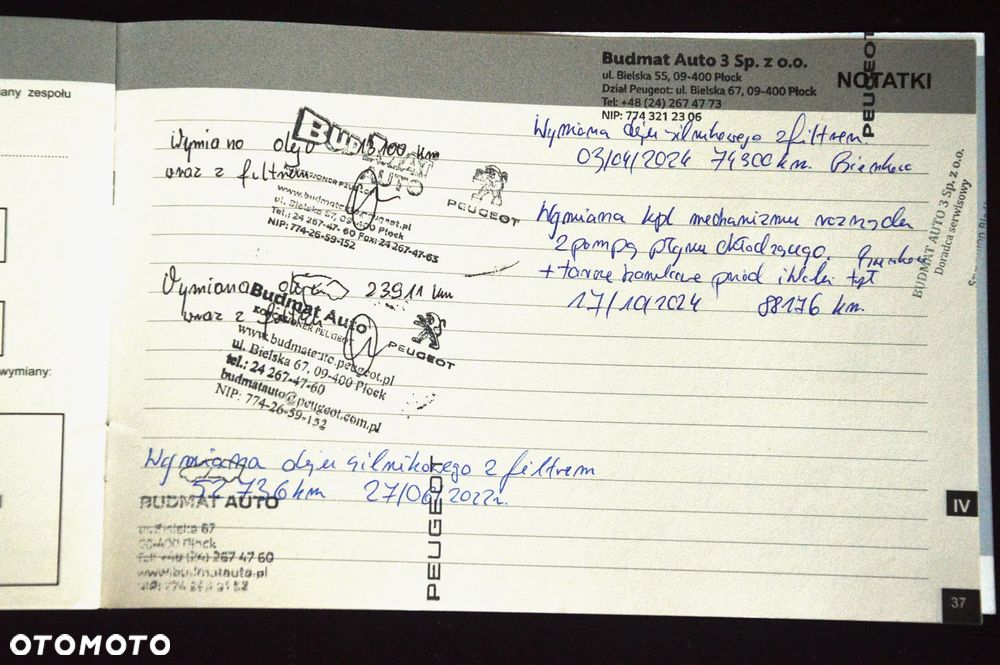 iany zespołu
wymiany:
Budmat Auto 3 Sp. z o.o.
ul. Bielska 55, 09-400 Płock
Dział Peugeot: ul. Bielska 67, 09-400 Płock
Tel: +48 (24) 267 47 73
NIP: 774 321 23 06
NOTATKI
PEUGEOT
Wymiano oleju 13100 km
wraz z filtrem
BUDMAT
AUTO
www.budmatauto.peugeot.pl
ul. Bielska 67, 09-400 Płock
Tel.: 24 267-47-60 Fax: 24 267-47-63
NIP: 774-26-59-152
PEUGEOT
Wymiana oleju 23911 km
wraz z
Budmat Auto
KONCESJONER PEUGEOT
www.budmatauto.peugeot.pl
ul. Bielska 67, 09-400 Płock
tel.: 24 267-47-60
budmatauto@peugeot.com.pl
NIP: 774-26-59-152
PEUGEOT
Wymiana oleju silnikowego z filtrem
52736km 27/06/2022r.
BUDMAT AUTO
ul. Bielska 67
09-400 Płock
tel. +48 (24) 267 47 60
www.budmatauto.pl
PEUGEOT
Wymiana oleju silnikowego z filtrem.
03/04/2024 74300km.
Wymiana kpl mechanizmu rozrządu
z pompą płynu chłodzącego.
+ tarcze hamulcowe przód i tył
17/10/2024 88176 km.
BUDMAT AUTO 3 Sp. z o.o.
Doradca serwisowy
IV
37
OTOMOTO